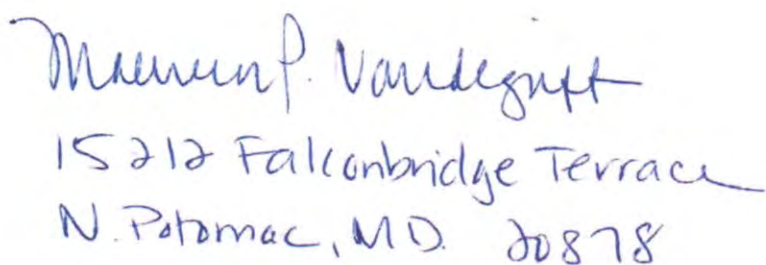 Maureen P. Vandegrift
15212 Falconbridge Terrace
N. Potomac, MD. 20878